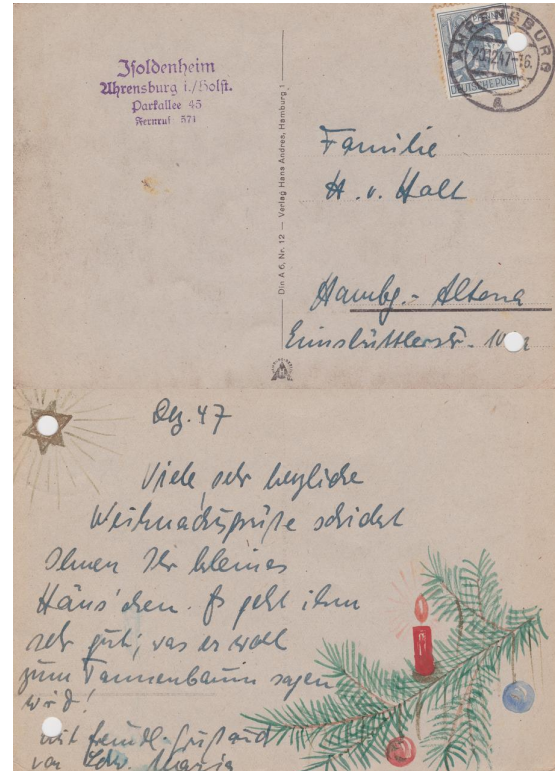 Isoldenheim
Ahrensburg i./Holst.
Parkallee 45
Fernruf 571
AHRENSBURG
DEUTSCHE POST
Din A 6, Nr. 12 — Verlag Hans Andres, Hamburg 1
Familie
H. v. Halt
Hambg.- Altona
Eimsbüttlerstr. 10
Dez. 47
Viele, sehr herzliche
Weihnachtsgrüße schickt
Ihnen Ihr kleines
Häns'chen. Es geht ihm
sehr gut, was er wohl
zum Tannenbaum sagen
wird!
Mit freundl.
von Schw. Maria